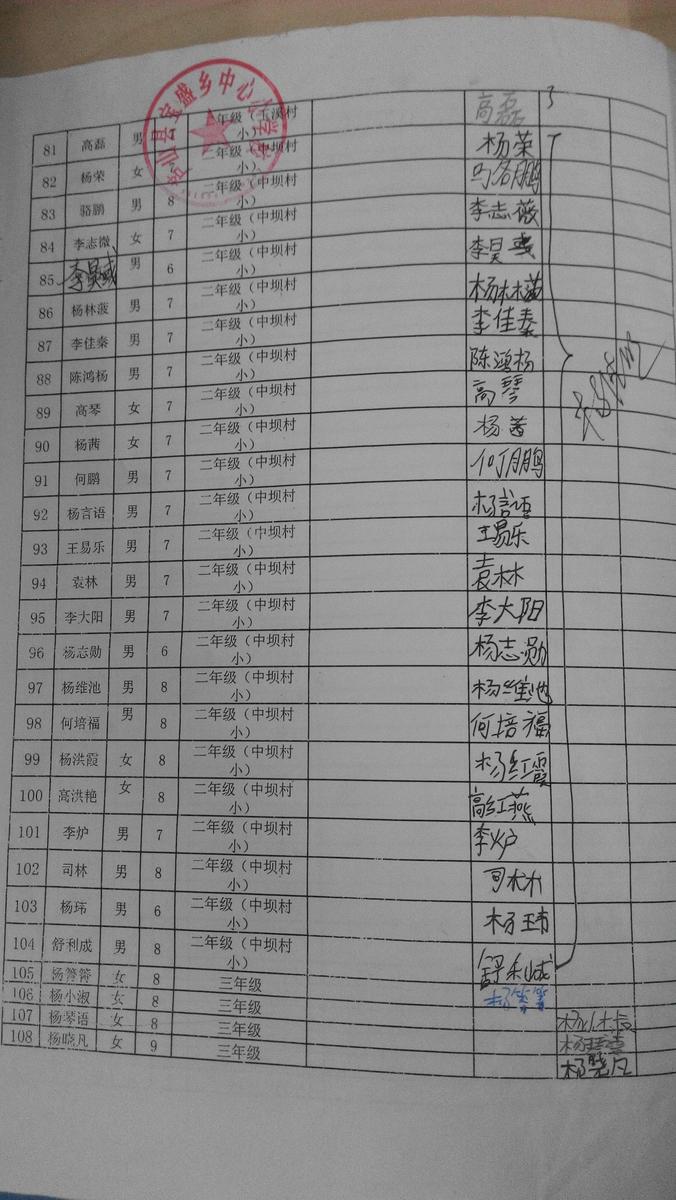 81 高磊 男 二年级（玉溪村小） 高磊
82 杨荣 女 二年级（中坝村小） 杨荣
83 骆鹏 男 8 二年级（中坝村小） 鹏
84 李志微 女 7 二年级（中坝村小） 李志薇
85 李昊彧 男 6 二年级（中坝村小） 李昊彧
86 杨林菠 男 7 二年级（中坝村小） 杨林菠
87 李佳秦 男 7 二年级（中坝村小） 李佳秦
88 陈鸿杨 男 7 二年级（中坝村小） 陈鸿杨
89 高琴 女 7 二年级（中坝村小） 高琴
90 杨茜 女 7 二年级（中坝村小） 杨茜
91 何鹏 男 7 二年级（中坝村小） 何鹏
92 杨言语 男 7 二年级（中坝村小） 杨言语
93 王易乐 男 7 二年级（中坝村小） 王易乐
94 袁林 男 7 二年级（中坝村小） 袁林
95 李大阳 男 7 二年级（中坝村小） 李大阳
96 杨志勋 男 6 二年级（中坝村小） 杨志勋
97 杨维池 男 8 二年级（中坝村小） 杨维池
98 何培福 男 8 二年级（中坝村小） 何培福
99 杨洪霞 女 8 二年级（中坝村小） 杨红霞
100 高洪艳 女 8 二年级（中坝村小） 高红燕
101 李炉 男 7 二年级（中坝村小） 李炉
102 司林 男 8 二年级（中坝村小） 司林
103 杨玮 男 6 二年级（中坝村小） 杨玮
104 舒利成 男 8 二年级（中坝村小） 舒利成
105 杨箐箐 女 8 三年级 杨箐箐
106 杨小淑 女 8 三年级 杨小淑
107 杨琴语 女 8 三年级
108 杨晓凡 女 9 三年级 杨晓凡
县宝盛乡中心小学